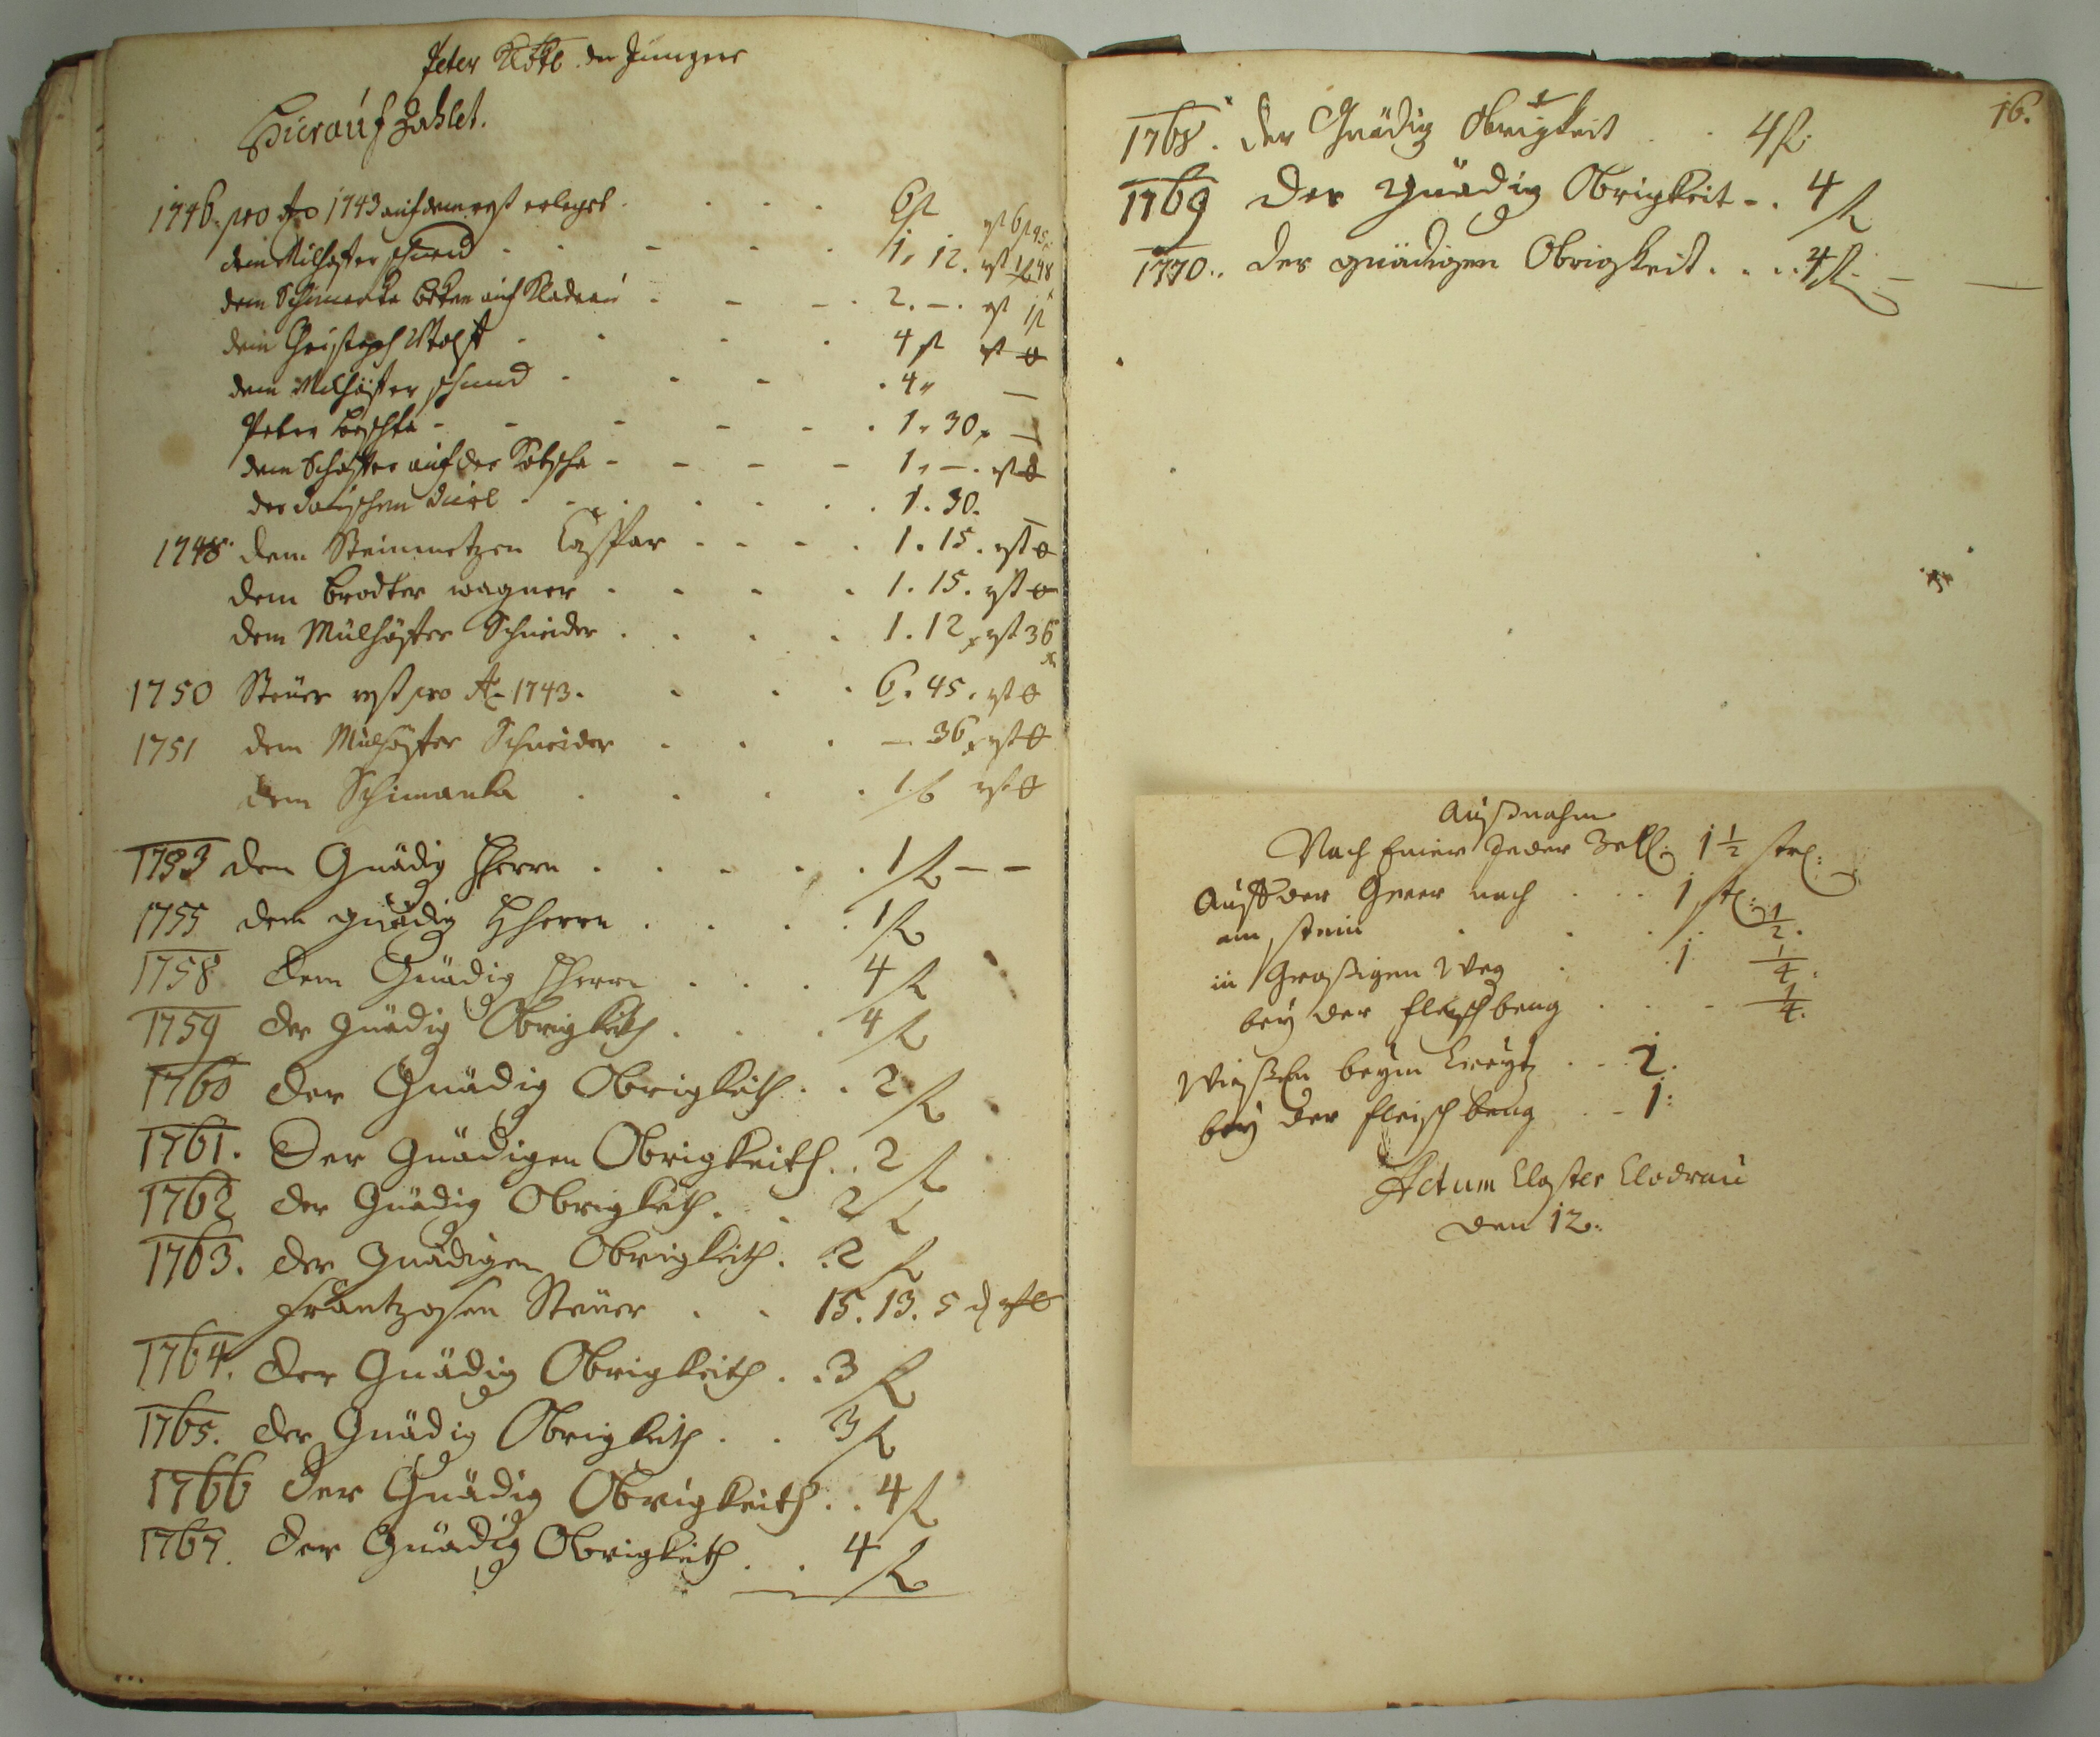 Peter der Jünger
Hierauf Zahlet.
1746. pro Ao 1743 auf dem rest erlegt . . . 6 fl rest 6 fl 45 x
dem Milhöffer Schneid - - - 1. 12. rest 1 fl 48
dem Schimanka auf Kladrau - - 2. -. rest 1 fl
dem Christoph Wolff . . . 4 fl rest 0
dem Milhöffer Schneid - - - 4 " —
Peter - - - - - 1. 30 x —
dem Schäffer auf der - - - 1. -. rest 0
der - - - 1. 30. —
1748. dem Steinmetzen Casspar - - - 1. 15. rest 0
dem Brodter wagner - - - 1. 15. rest 0
dem Mülhöffer Schneider . . . 1. 12 x rest 36 x
1750 Steüer rest pro Ao 1743. . . . 6. 45. rest 0
1751 dem Mülhöffer Schneider . . . — 36 x rest 0
dem Schimanka . . . 1 f rest 0
1753 dem Gnädig Herrn . . . . 1 fl — —
1755 dem gnädig Herrn . . . . 1 fl
1758 dem Gnädig Herrn . . . 4 fl
1759 der Gnädig Obrigkeith . . . 4 fl
1760 der Gnädig Obrigkeith . . 2 fl
1761. Der Gnädigen Obrigkeith . . 2 fl
1762 der Gnädig Obrigkeith . . 2 fl
1763. der Gnädigen Obrigkeith . . 2 fl
Frantzosen Steüer . . 15. 13. 5 d rest 0
1764. der Gnädig Obrigkeith . . 3 fl
1765. der Gnädig Obrigkeith . . 3 fl
1766 der Gnädig Obrigkeith . . 4 fl
1767. der Gnädig Obrigkeith . . 4 fl
16.
1768. der Gnädig Obrigkeit . . 4 fl.
1769 der gnädig Obrigkeit - . 4 fl
1770.. der gnädigen Obrigkeit . . . 4 fl. —
Außnahm
Nach Einer Jeder Zell: 1 1/2 strl:
Auff der nach . . . 1 stl:
am stein . . . . 1/2.
in Graßigen Weg . . 1 1/4.
bey der fleischbeng . . - 1/4.
Wießen beym Creytz . . . 2.
bey der fleischbeng . . - 1:
Actum Closter Clodrau
den 12.